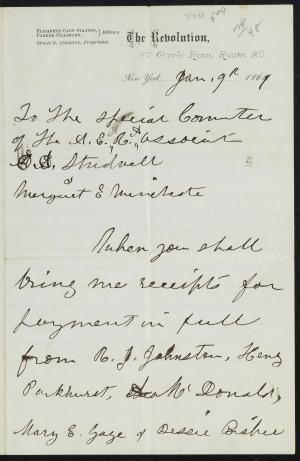 ELIZABETH CADY STANTON,
PARKER PILLSBURY, Editors.
SUSAN B. ANTHONY, Proprietor.
The Revolution,
37 Park Row, Room 20.
New York, Jan. 9th 1869
To The Special Committee
of The A. E. R. Associat
Studwell
Margaret E Winchester
When you shall
bring me receipts for
payment in full
from R. J. Johnston, Henry
Parkhurst, Mc Donald,
Mary E. Gage & Bessie Bisbee